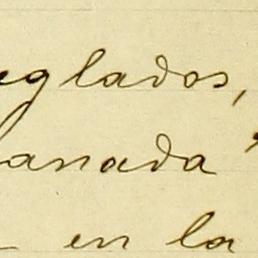 glados,
anada"
en la